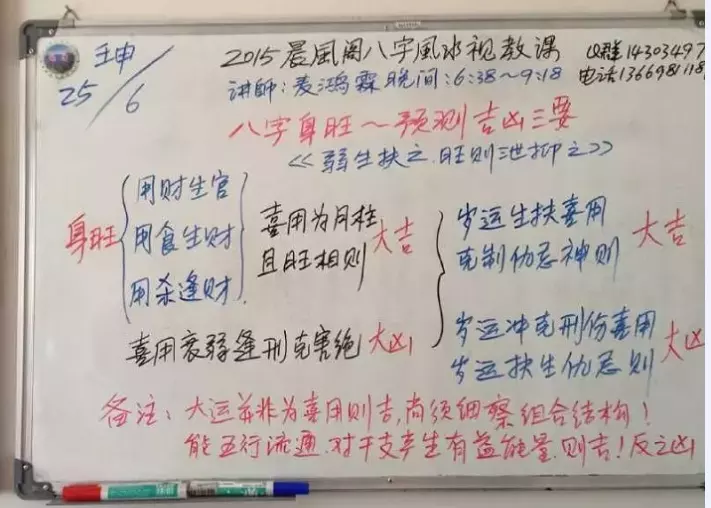 壬申
25/6
2015晨風阁八字風水视教课 Q群14303497
讲師:麦鸿霖 晚间:6:38~9:18 电话13669811189
八字身旺~预测吉凶三要
《弱生扶之.旺则泄抑之》
身旺
用财生官
用食生财
用杀逢财
喜用为月柱
且旺相则 大吉
喜用衰弱逢刑克害绝 大凶
岁运生扶喜用
克制仇忌神则 大吉
岁运冲克刑伤喜用
岁运扶生仇忌则 大凶
备注:大运并非为喜用则吉,尚须细察组合结构!
能五行流通.对干支产生有益能量.则吉!反之凶